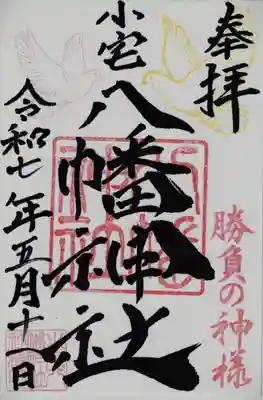 奉拝
勝負の神様
小宅八幡神社
令和七年五月十一日